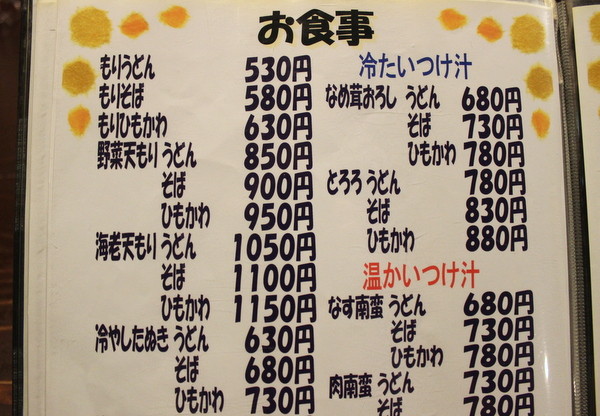 お食事
もりうどん 530円
もりそば 580円
もりひもかわ 630円
野菜天もり うどん 850円
そば 900円
ひもかわ 950円
海老天もり うどん 1050円
そば 1100円
ひもかわ 1150円
冷やしたぬき うどん 630円
そば 680円
ひもかわ 730円
冷たいつけ汁
なめ茸おろし うどん 680円
そば 730円
ひもかわ 780円
とろろ うどん 780円
そば 830円
ひもかわ 880円
温かいつけ汁
なす南蛮 うどん 680円
そば 730円
ひもかわ 780円
肉南蛮 うどん 730円
そば 780円